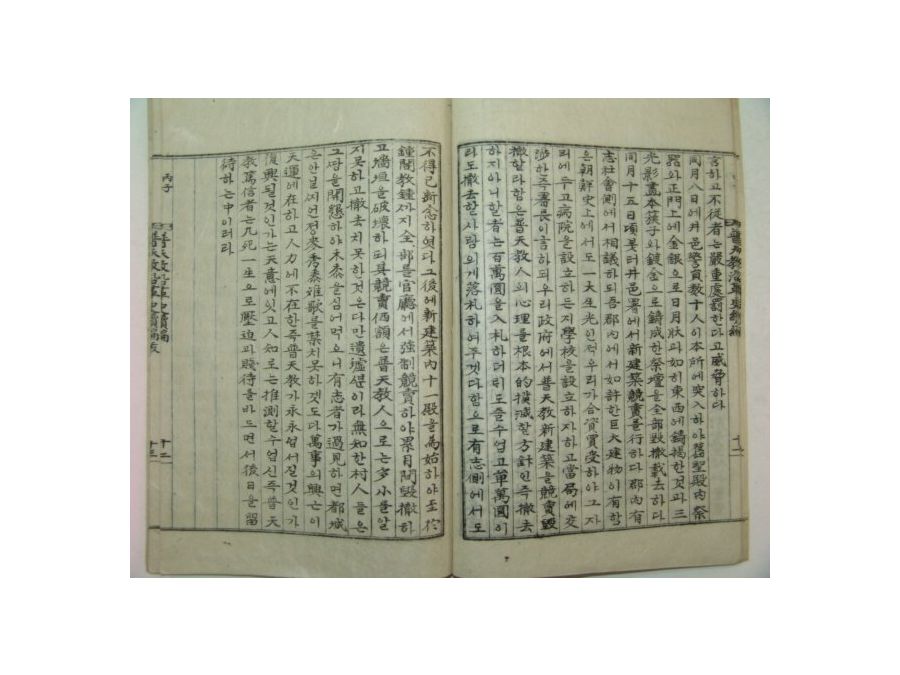 言하고不從者는嚴重處罰한다고威脅하다
同月八日에井邑警員數十人이本所에突入하야舊聖殿內祭
器와正門上에金銀으로日月狀과如히東西에鑄揭한것과三
光影畵本簇子와鍍金으로鑄成한祭壇을全部毁撤載去하다
同月十五日頃붓터井邑署에서新建築競賣를行하다郡內有
志社會側에서相議하되吾郡內에서如許한巨大建物이有함
은朝鮮史上에서도一大生光인적우리가合資買受하야그자
리에두고病院을設立하든지學校을設立하자하고當局에交
涉하즉署長이言하되우리政府에서普天敎新建築을競賣毁
撤할라함은普天敎人의心理를根本的撲滅할方針인즉撤去
하지아니할者는百萬圓을入札하더래도줄수업고單萬圓이
라도撤去한사람의게落札하여주겟다함으로有志側에서도
不得已斷念하엿다그後에新建築內十一殿을爲始하야至於
鐘閣敎鍾까지全部를官廳에서强制競賣하야累月間毁撤하
고墻垣을破壞하되其競賣価額은普天敎人으로는多小를알
지못하고撤去치못하한것은다만遺墟뿐이라無知한村人들은
그땅을開墾하야木黍을심어먹으니有志者가過見하면都城
은안보지언정麥秀黍離歌를禁치못하겟도다萬事의興亡이
天運에在하고人力에不在한즉普天敎가永永업서질것인가
復興될것인가는天意에잇고人知로는推測할수업신즉普天
敎萬信者는九死一生으로壓迫과賤待을바드면서後日을留
待하는中이러라
丙子
普天敎沿革史續編
十二
普天敎沿革史續編
十三